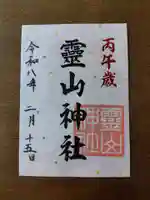 丙午歳
靈山神社
令和八年
二月十五日
靈山
神社